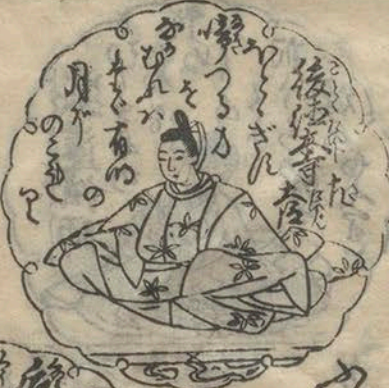 後徳大寺左大臣
ほとゝぎす
鳴つる方
を
ながむれば
たゞ有明の
月ぞ
のこれる